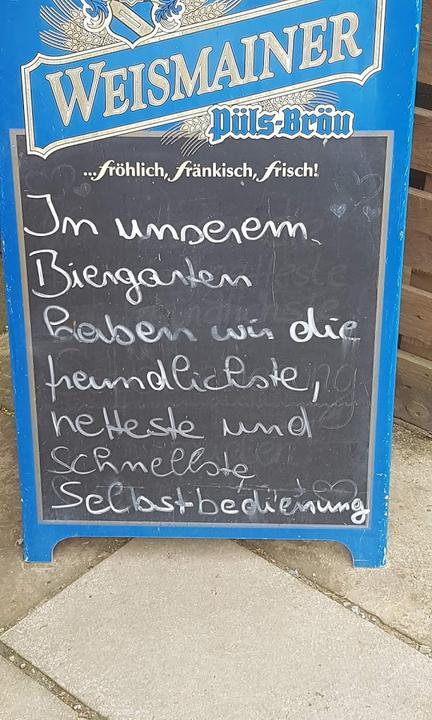 WEISMAINER
Püls-Bräu
...fröhlich, fränkisch, frisch!
In unserem
Biergarten
haben wir die
freundlichste,
netteste und
schnellste
Selbstbedienung